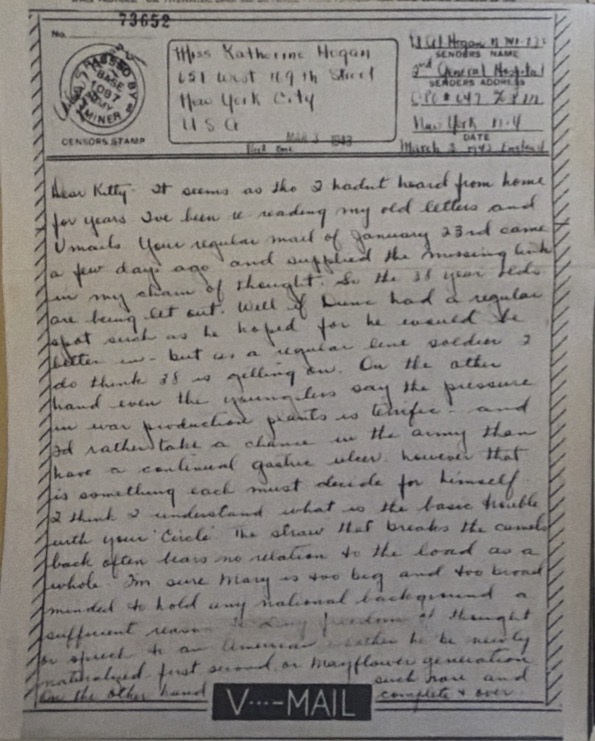 73652
No.
PASSED BY
BASE
1087
ARMY
EXAMINER
CENSORS STAMP
Miss Katherine Hogan
651 West 169th Street
New York City
U S A
MAR 3 1943
Hogan N
SENDERS NAME
2nd General Hospital
SENDERS ADDRESS
APO #647 % P M
New York N-Y
DATE
March 2 1943 England
Dear Kitty- It seems as tho I hadnt heard from home
for years I've been re reading my old letters and
Vmails Your regular mail of January 23rd came
a few days ago and supplied the missing link
in my chain of thought. So the 38 year olds
are being let out. Well if Dunc had a regular
spot such as he hoped for he would be
better in- but as a regular line soldier I
do think 38 is getting on. On the other
hand even the youngsters say the pressure
in war production plants is terrific- and
I'd rather take a chance in the army than
have a continual gastric ulcer however that
is something each must decide for himself.
I think I understand what is the basic trouble
with your 'Circle' The straw that breaks the camels
back often bears no relation to the load as a
whole. I'm sure Mary is too big and too broad
minded to hold any national background a
sufficient reason to deny freedom of thought
or speech to an American whether he be newly
naturalized first second, or Mayflower generation
On the other hand such and
complete & over.
V···—MAIL